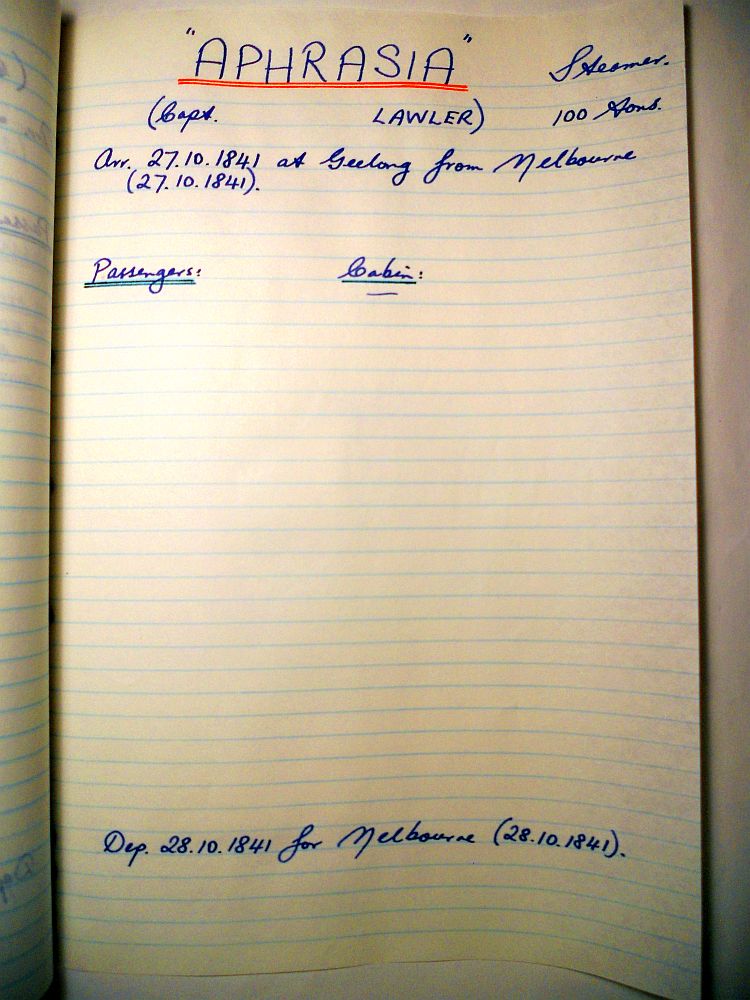 "APHRASIA" Steamer.
(Capt. LAWLER) 100 Tons.
Arr. 27.10.1841 at Geelong from Melbourne
(27.10.1841).
Passengers: Cabin:
Dep. 28.10.1841 for Melbourne (28.10.1841).